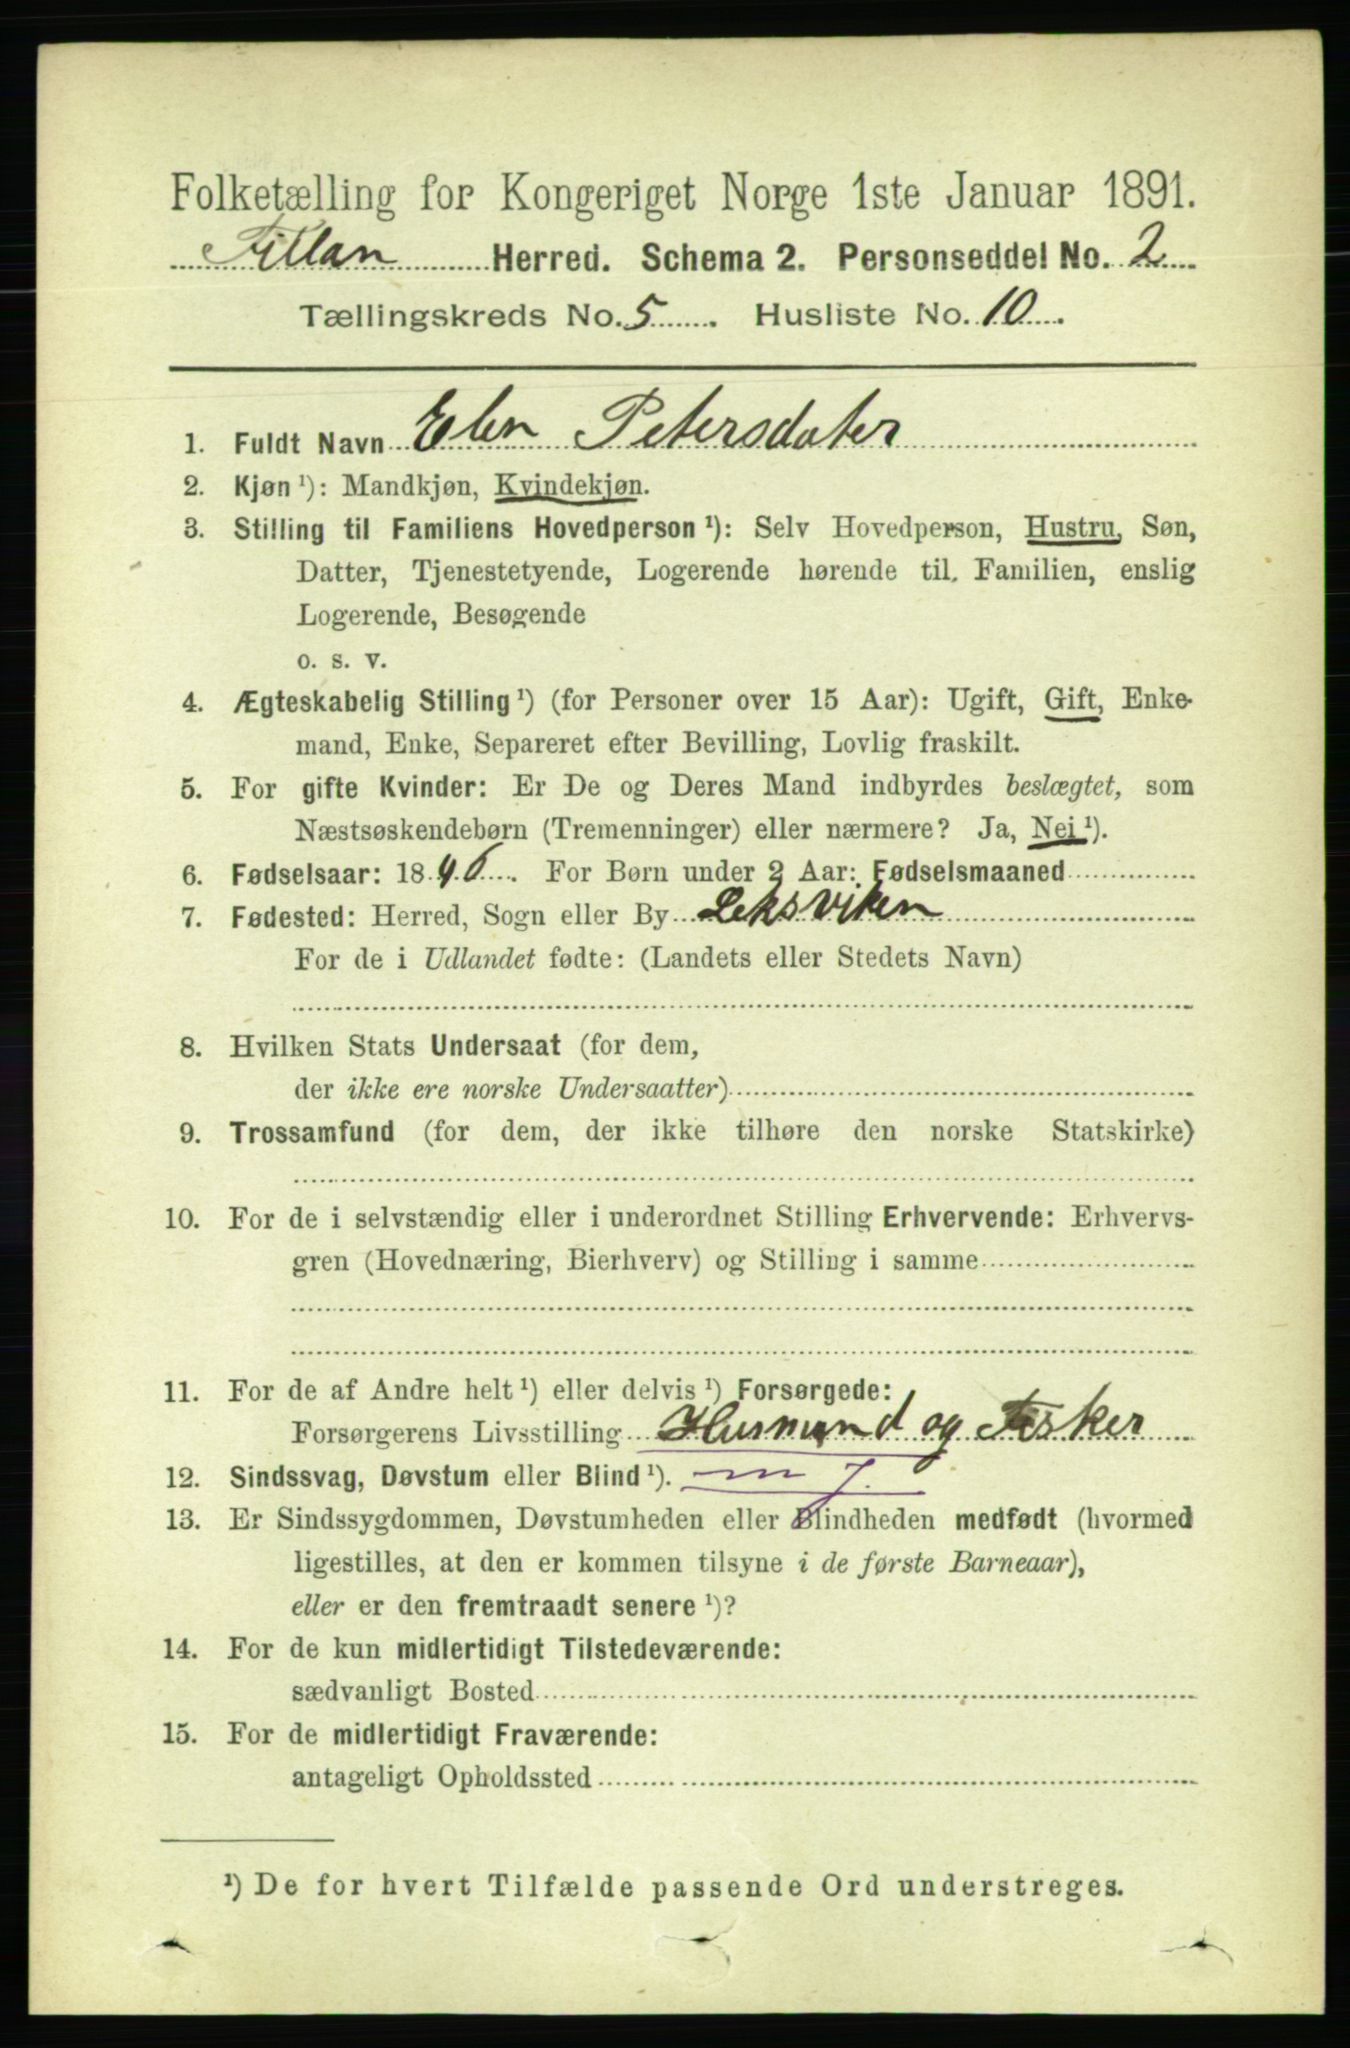 Folketælling for Kongeriget Norge 1ste Januar 1891.
Fillan Herred. Schema 2. Personseddel No. 2
Tællingskreds No. 5 Husliste No. 10
1. Fuldt Navn Elen Petersdater
2. Kjøn ¹): Mandkjøn, Kvindekjøn.
3. Stilling til Familiens Hovedperson ¹): Selv Hovedperson, Hustru, Søn,
Datter, Tjenestetyende, Logerende hørende til Familien, enslig
Logerende, Besøgende
o. s. v.
4. Ægteskabelig Stilling ¹) (for Personer over 15 Aar): Ugift, Gift, Enke-
mand, Enke, Separeret efter Bevilling, Lovlig fraskilt.
5. For gifte Kvinder: Er De og Deres Mand indbyrdes beslægtet, som
Næstsøskendebørn (Tremenninger) eller nærmere? Ja, Nei ¹).
6. Fødselsaar: 1846. For Børn under 2 Aar: Fødselsmaaned
7. Fødested: Herred, Sogn eller By Leksviken
For de i Udlandet fødte: (Landets eller Stedets Navn)
8. Hvilken Stats Undersaat (for dem,
der ikke ere norske Undersaatter)
9. Trossamfund (for dem, der ikke tilhøre den norske Statskirke)
10. For de i selvstændig eller i underordnet Stilling Erhvervende: Erhvervs-
gren (Hovednæring, Bierhverv) og Stilling i samme
11. For de af Andre helt ¹) eller delvis ¹) Forsørgede:
Forsørgerens Livsstilling Husmand og Fisker
12. Sindssvag, Døvstum eller Blind ¹).
13. Er Sindssygdommen, Døvstumheden eller Blindheden medfødt (hvormed
ligestilles, at den er kommen tilsyne i de første Barneaar),
eller er den fremtraadt senere ¹)?
14. For de kun midlertidigt Tilstedeværende:
sædvanligt Bosted
15. For de midlertidigt Fraværende:
antageligt Opholdssted
¹) De for hvert Tilfælde passende Ord understreges.